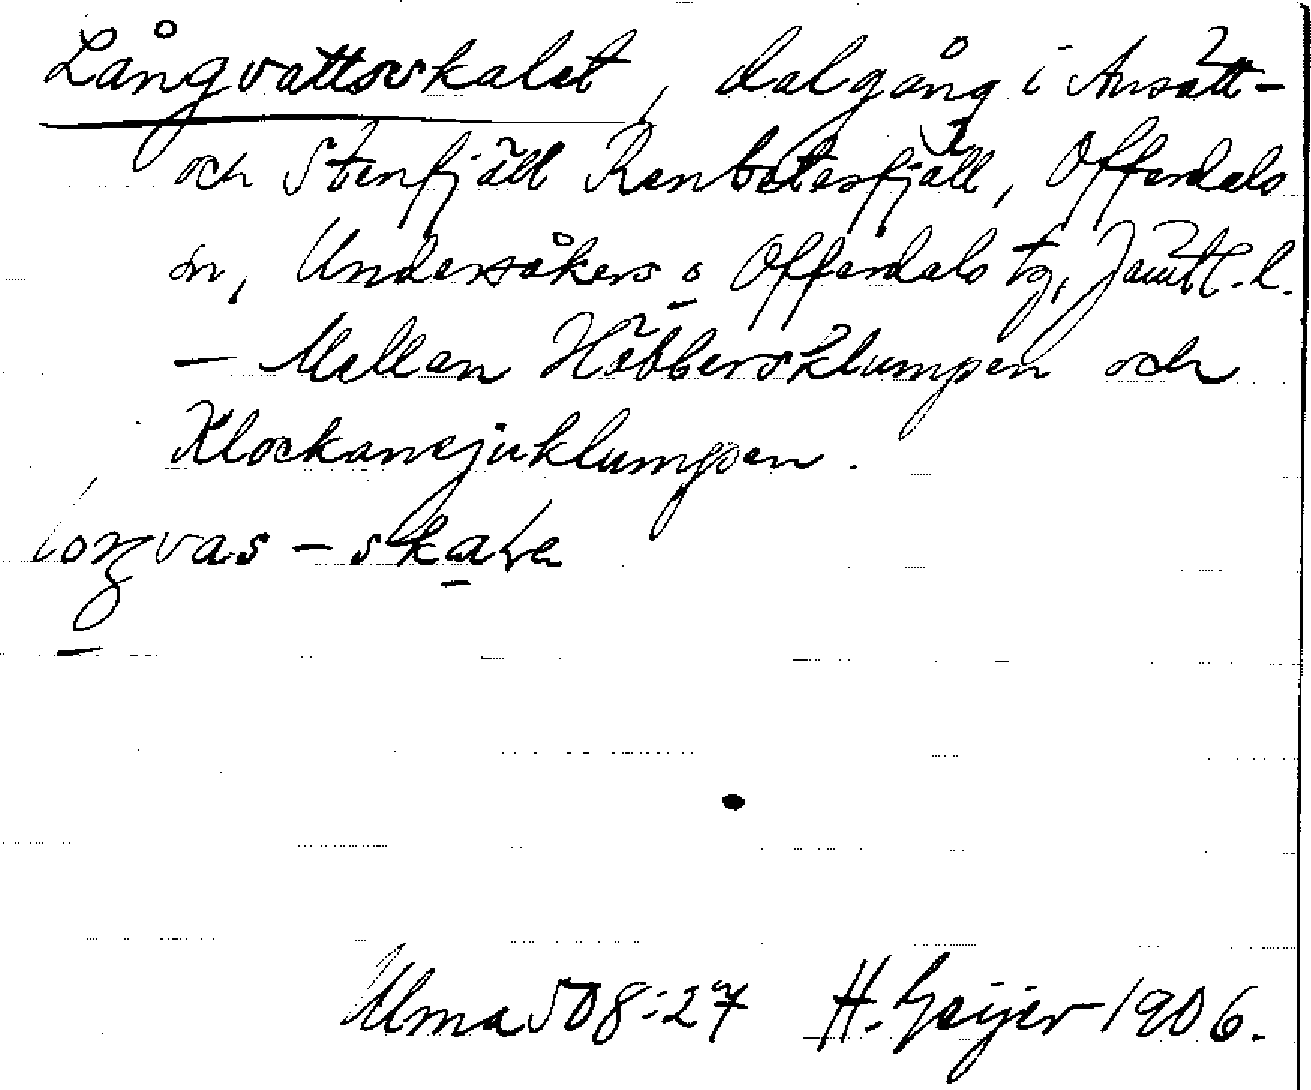 Långvattsskalet, dalgång i Ansätt-
och Stenfjäll Renbetesfjäll, Offerdals
sn, Undersåkers o Offerdals tg, Jämtl. l.
– Mellan Häbbersklumpen och
Klockansjuklumpen.
loŋvas-skaLe
Ulma 508:27 H. Geijer 1906.